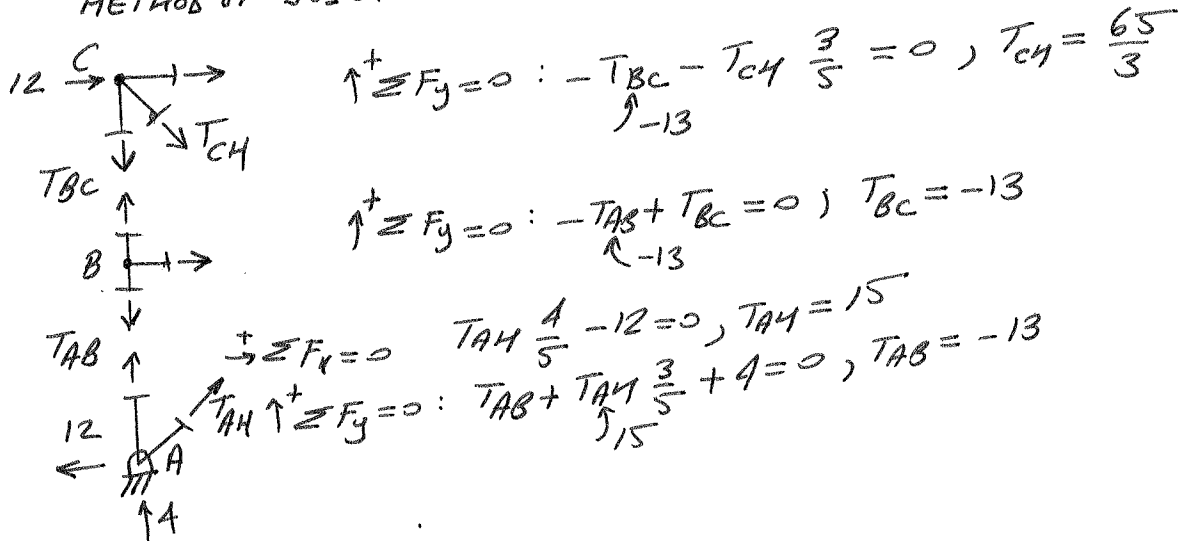 METHOD OF
12 C ↑+ ΣFy=0 : -TBC - TCH 3/5 = 0 , TCH = 65/3
-13
TCH
TBC
↑+ ΣFy=0 : -TAB + TBC = 0 ; TBC = -13
-13
B
TAB
→+ ΣFx=0 TAH 4/5 -12=0 , TAH = 15
TAH ↑+ ΣFy=0 : TAB + TAH 3/5 + 4 = 0 , TAB = -13
15
12
A
4